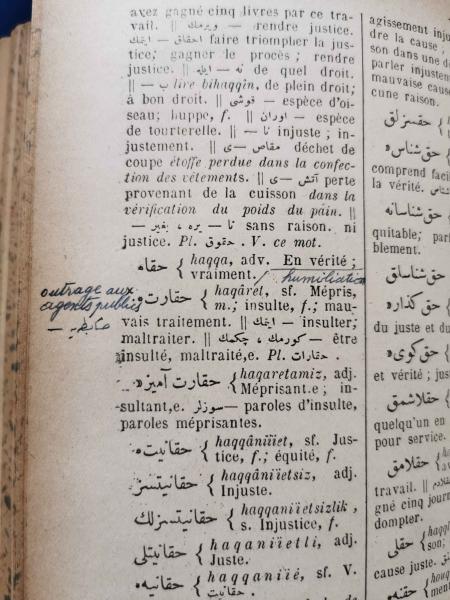 avez gagné cinq livres par ce tra-
vail. || ویرمك — rendre justice.
احقاق — ایتمك faire triompler la jus-
tice; gagner le procès; rendre
justice. || نه — ایله de quel droit.
|| — ب lire bihaqqin, de plein droit;
à bon droit. قوشی — espèce d'oi-
seau; huppe, f. || اوران — espèce
de tourterelle. || نا — injuste; in-
justement. || مقاص — ی déchet de
coupe étoffe perdue dans la confec-
tion des vêtements. || آتش — ی perte
provenant de la cuisson dans la
vérification du poids du pain. ||
نا — یره، بغیر — sans raison. ni
justice. Pl. حقوق. V. ce mot.
حقاه { haqqa, adv. En vérité;
vraiment. / humiliation
outrage aux
agents publics
حقارت { haqâret, sf. Mépris,
m.; insulte, f.; mau-
vais traitement. || ایتمك — insulter;
maltraiter. || كورمك، چكمك — être
insulté, maltraité,e. Pl. حقارات.
حقارت آمیز { haqaretamiz, adj.
Méprisant.e; in-
sultant,e. سوزلر — paroles d'insulte,
paroles méprisantes.
حقانیت { haqqâniïet, sf. Jus-
tice, f.; équité, f.
حقانیتسز { haqqâniïetsiz, adj.
Injuste.
حقانیتسزلك { haqqaniïetsizlik,
s. Injustice, f.
حقانیتلی { haqaniïetli, adj.
Juste.
حقانیه { haqqaniïé, sf. V.
حقانیت.
agissement inju
dre la cause;
son dans une d
parler injustem
mauvaise cause
cune raison.
حقسزلق
حق شناس
comprend facil
la vérité.
حق شناسانه
quitable; par
blement.
حق شناسلق
حق كذار
du juste et du
حق كوی
et vérité; jus
حقلاشمق
quelqu'un en
pour service.
حقلامق
travail. ||
gné cinq jour
dompter.
حقلی
son;
cause juste.
حقنه